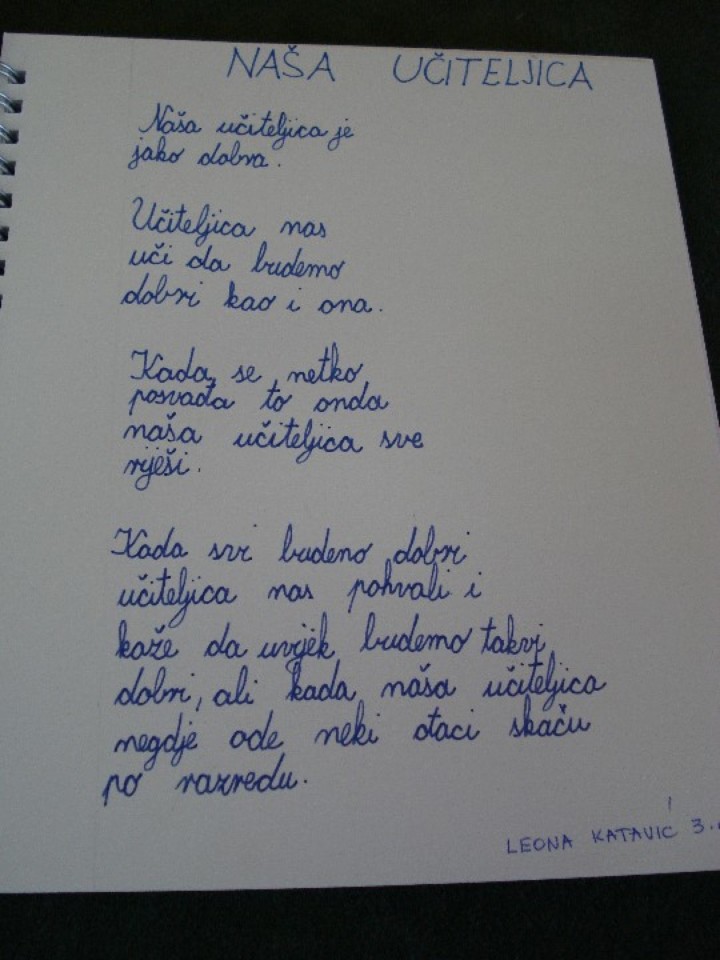 NAŠA UČITELJICA
Naša učiteljica je
jako dobra.
Učiteljica nas
uči da budemo
dobri kao i ona.
Kada se netko
posvađa to onda
naša učiteljica sve
riješi.
Kada svi budeno dobri
učiteljica nas pohvali i
kaže da uvijek budemo takvi
dobri, ali kada naša učiteljica
negdje ode neki đaci skaču
po razredu.
LEONA KATAVIĆ 3.